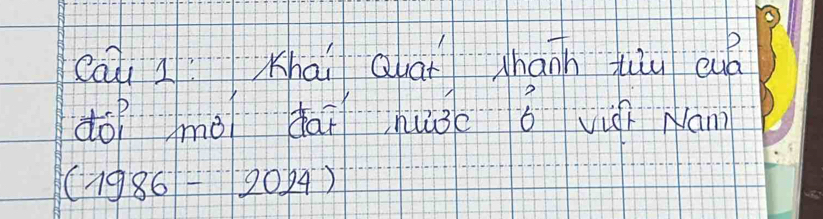 Câu 1: Khái Quát thành tựu của
đổi mới đất nước ở việt Nam
(1986 - 2024)